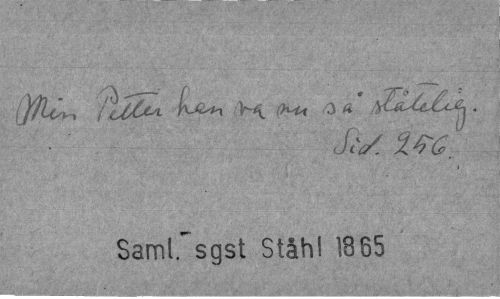 Min Petter han va nu så ståtelig.
Sid. 256.
Saml. sgst Ståhl 1865